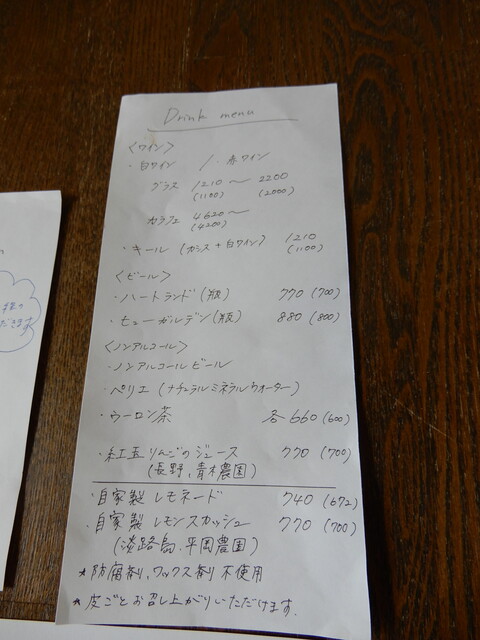 Drink menu
〈ワイン〉
・白ワイン / ・赤ワイン
グラス 1210 〜 2200
(1100) (2000)
カラフェ 4620〜
(4200)
・キール (カシス + 白ワイン) 1210
(1100)
〈ビール〉
・ハートランド(瓶) 770 (700)
・ヒューガルデン(瓶) 880 (800)
〈ノンアルコール〉
・ノンアルコールビール
・ペリエ (ナチュラルミネラルウォーター)
・ウーロン茶 各660(600)
・紅玉りんごのジュース 770 (700)
(長野、青木農園)
・自家製レモネード 740 (672)
・自家製レモンスカッシュ 770 (700)
(淡路島、平岡農園)
*防腐剤、ワックス剤不使用
*皮ごとお召し上がりいただけます。